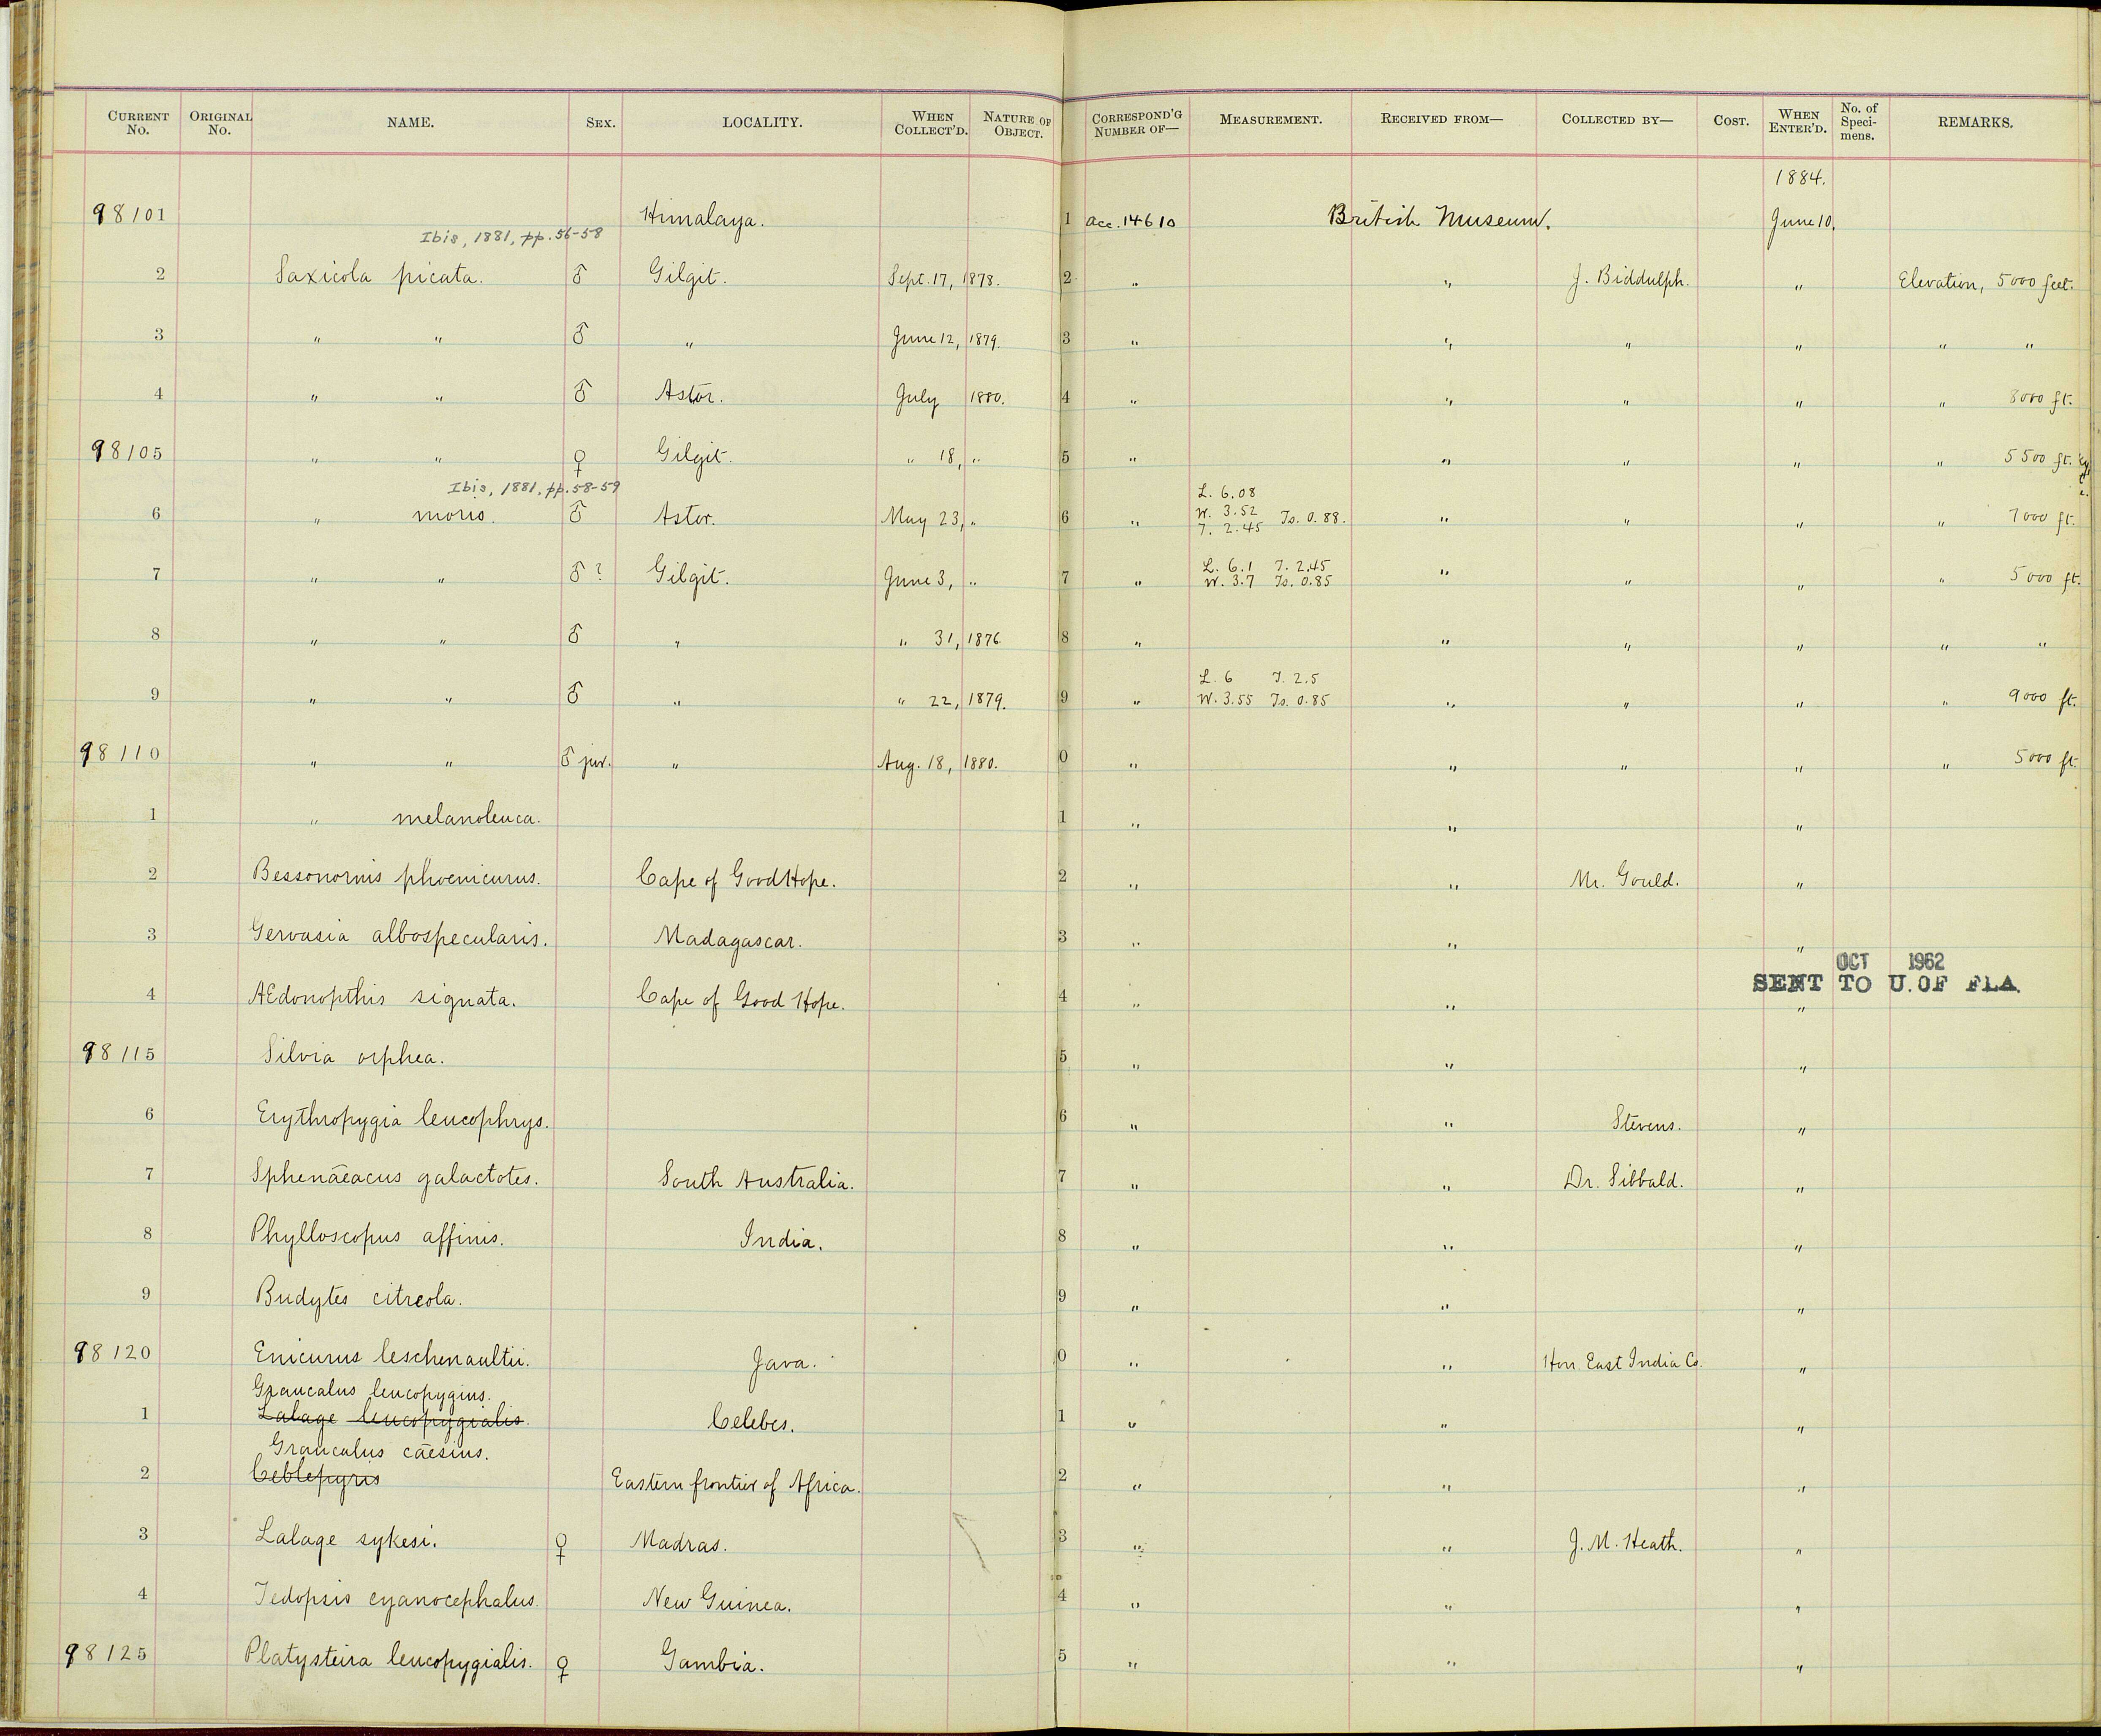 CURRENT No. ORIGINAL No. NAME. SEX. LOCALITY. WHEN COLLECT'D. NATURE OF OBJECT. CORRESPOND'G NUMBER OF— MEASUREMENT. RECEIVED FROM— COLLECTED BY— COST. WHEN ENTER'D. No. of Speci-mens. REMARKS.
1884.
98101 Himalaya. 1 acc. 14610 British Museum. June 10.
Ibis, 1881, pp. 56-58
2 Saxicola picata. ♂ Gilgit. Sept. 17, 1878. 2 " " J. Biddulph. " Elevation, 5000 feet.
3 " " ♂ " June 12, 1879. 3 " " " " " "
4 " " ♂ Astor. July 1880. 4 " " " " " 8000 ft.
98105 " " ♀ Gilgit. " 18, " 5 " " " " " 5500 ft.
Ibis, 1881, pp. 58-59
6 " morio. ♂ Astor. May 23, " 6 " L. 6.08 W. 3.52 T. 2.45 Ts. 0.88. " " " " 7000 ft.
7 " " ♂? Gilgit. June 3, " 7 " L. 6.1 T. 2.45 W. 3.7 Ts. 0.85 " " " " 5000 ft.
8 " " ♂ " " 31, 1876 8 " " " " " "
9 " " ♂ " " 22, 1879. 9 " L. 6 T. 2.5 W. 3.55 Ts. 0.85 " " " " 9000 ft.
98110 " " ♂ juv. " Aug. 18, 1880. 0 " " " " " 5000 ft.
1 " melanoleuca. 1 " " "
2 Bessonornis phoenicurus. Cape of Good Hope. 2 " " Mr. Gould. "
3 Gervasia albospecularis. Madagascar. 3 " " "
OCT 1962
SENT TO U. OF FLA.
4 AEdonopthis signata. Cape of Good Hope. 4 " " "
98115 Silvia orphea. 5 " " "
6 Erythropygia leucophrys. 6 " " Stevens. "
7 Sphenāeacus galactotes. South Australia. 7 " " Dr. Sibbald. "
8 Phylloscopus affinis. India. 8 " " "
9 Budytes citreola. 9 " " "
98120 Enicurus leschenaultii. Java. 0 " " Hon. East India Co. "
Graucalus leucopygius.
1 Lalage leucopygialis. Celebes. 1 " " "
Graucalus cāesius.
2 Ceblepyris Eastern frontier of Africa. 2 " " "
3 Lalage sykesi. ♀ Madras. 3 " " J. M. Heath. "
4 Tedopsis cyanocephalus. New Guinea. 4 " " "
98125 Platysteira leucopygialis. ♀ Gambia. 5 " " "